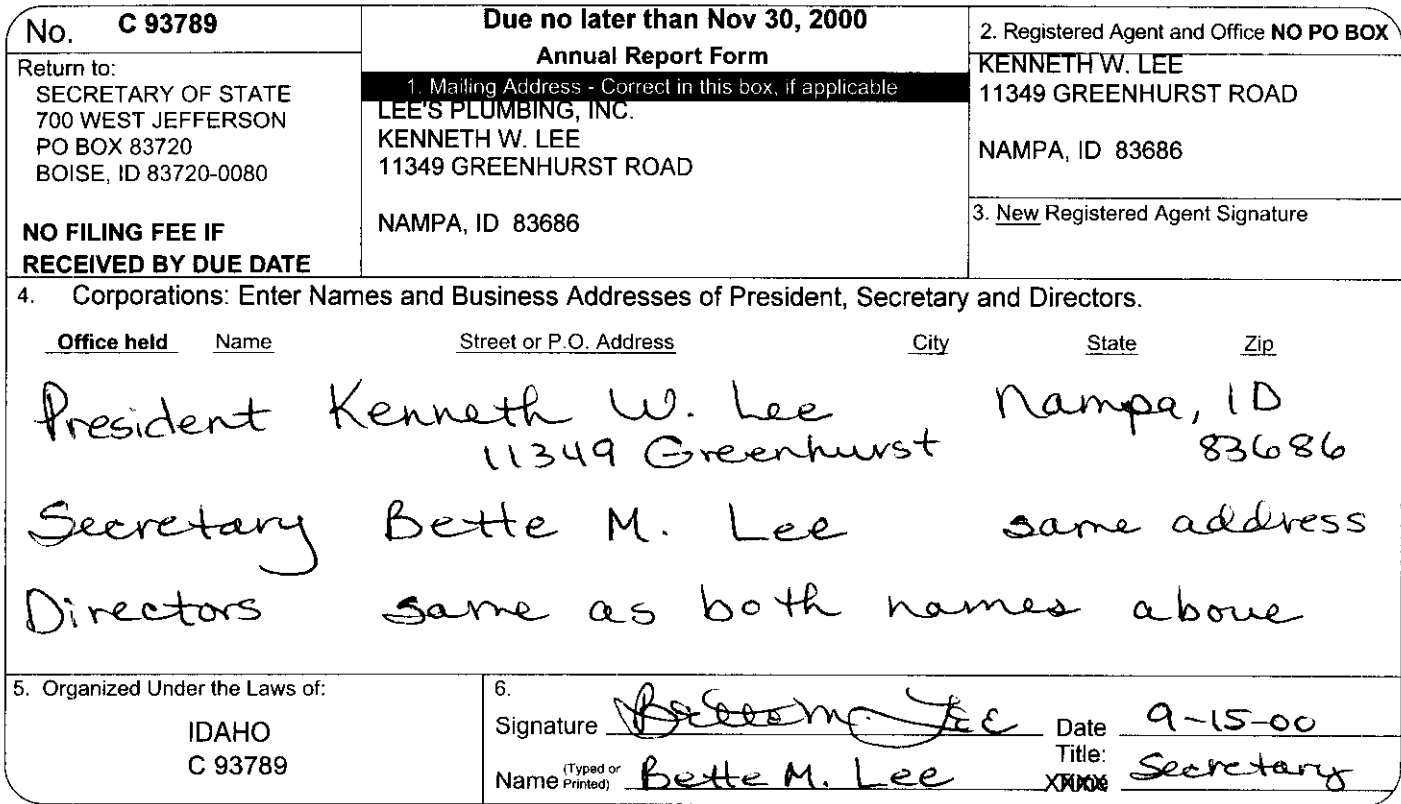 No. C 93789
Return to:
SECRETARY OF STATE
700 WEST JEFFERSON
PO BOX 83720
BOISE, ID 83720-0080
NO FILING FEE IF
RECEIVED BY DUE DATE
Due no later than Nov 30, 2000
Annual Report Form
1. Mailing Address - Correct in this box, if applicable
LEE'S PLUMBING, INC.
KENNETH W. LEE
11349 GREENHURST ROAD
NAMPA, ID 83686
2. Registered Agent and Office NO PO BOX
KENNETH W. LEE
11349 GREENHURST ROAD
NAMPA, ID 83686
3. New Registered Agent Signature
4. Corporations: Enter Names and Business Addresses of President, Secretary and Directors.
Office held Name Street or P.O. Address City State Zip
President Kenneth W. Lee Nampa, ID
11349 Greenhurst 83686
Secretary Bette M. Lee same address
Directors same as both names above
5. Organized Under the Laws of:
IDAHO
C 93789
6.
Signature Bette M. Lee Date 9-15-00
Name (Typed or Printed) Bette M. Lee Title: Secretary